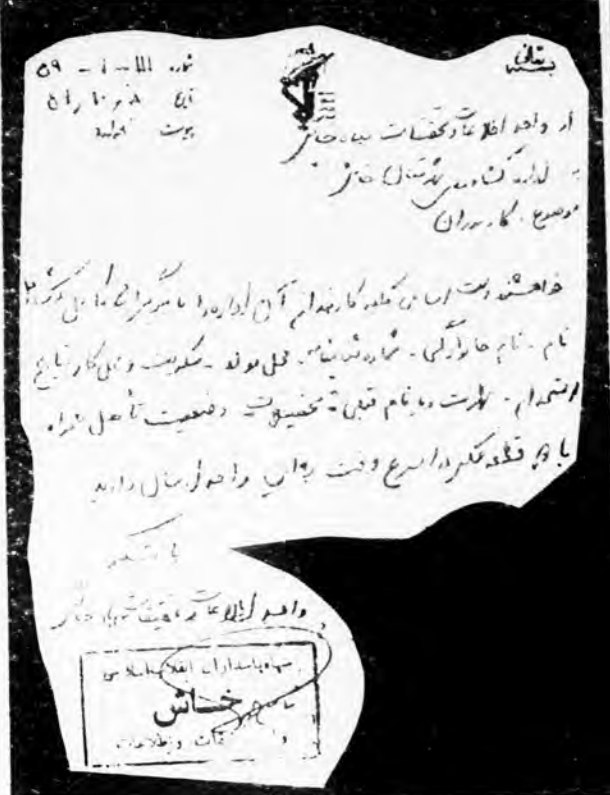 بسمه تعالی
شماره ۱۱۱ – ۱ – ۵۹
تاریخ
پیوست ندارد
از واحد اطلاعات و تحقیقات سپاه خاش
به اداره کشاورزی شهرستان خاش
موضوع: کارمندان
خواهشمند است اسامی کلیه کارمندان آن اداره را با مشخصات کامل
نام – نام خانوادگی – شماره شناسنامه – محل تولد – سکونت و محل کار تاریخ
استخدام – شهرت و یا نام قبلی – تحصیلات – وضعیت تأهل همراه
با قطعه عکس در اسرع وقت به این واحد ارسال دارید
با تشکر
واحد اطلاعات و تحقیقات سپاه خاش
سپاه پاسداران انقلاب اسلامی
خاش
تحقیقات و اطلاعات